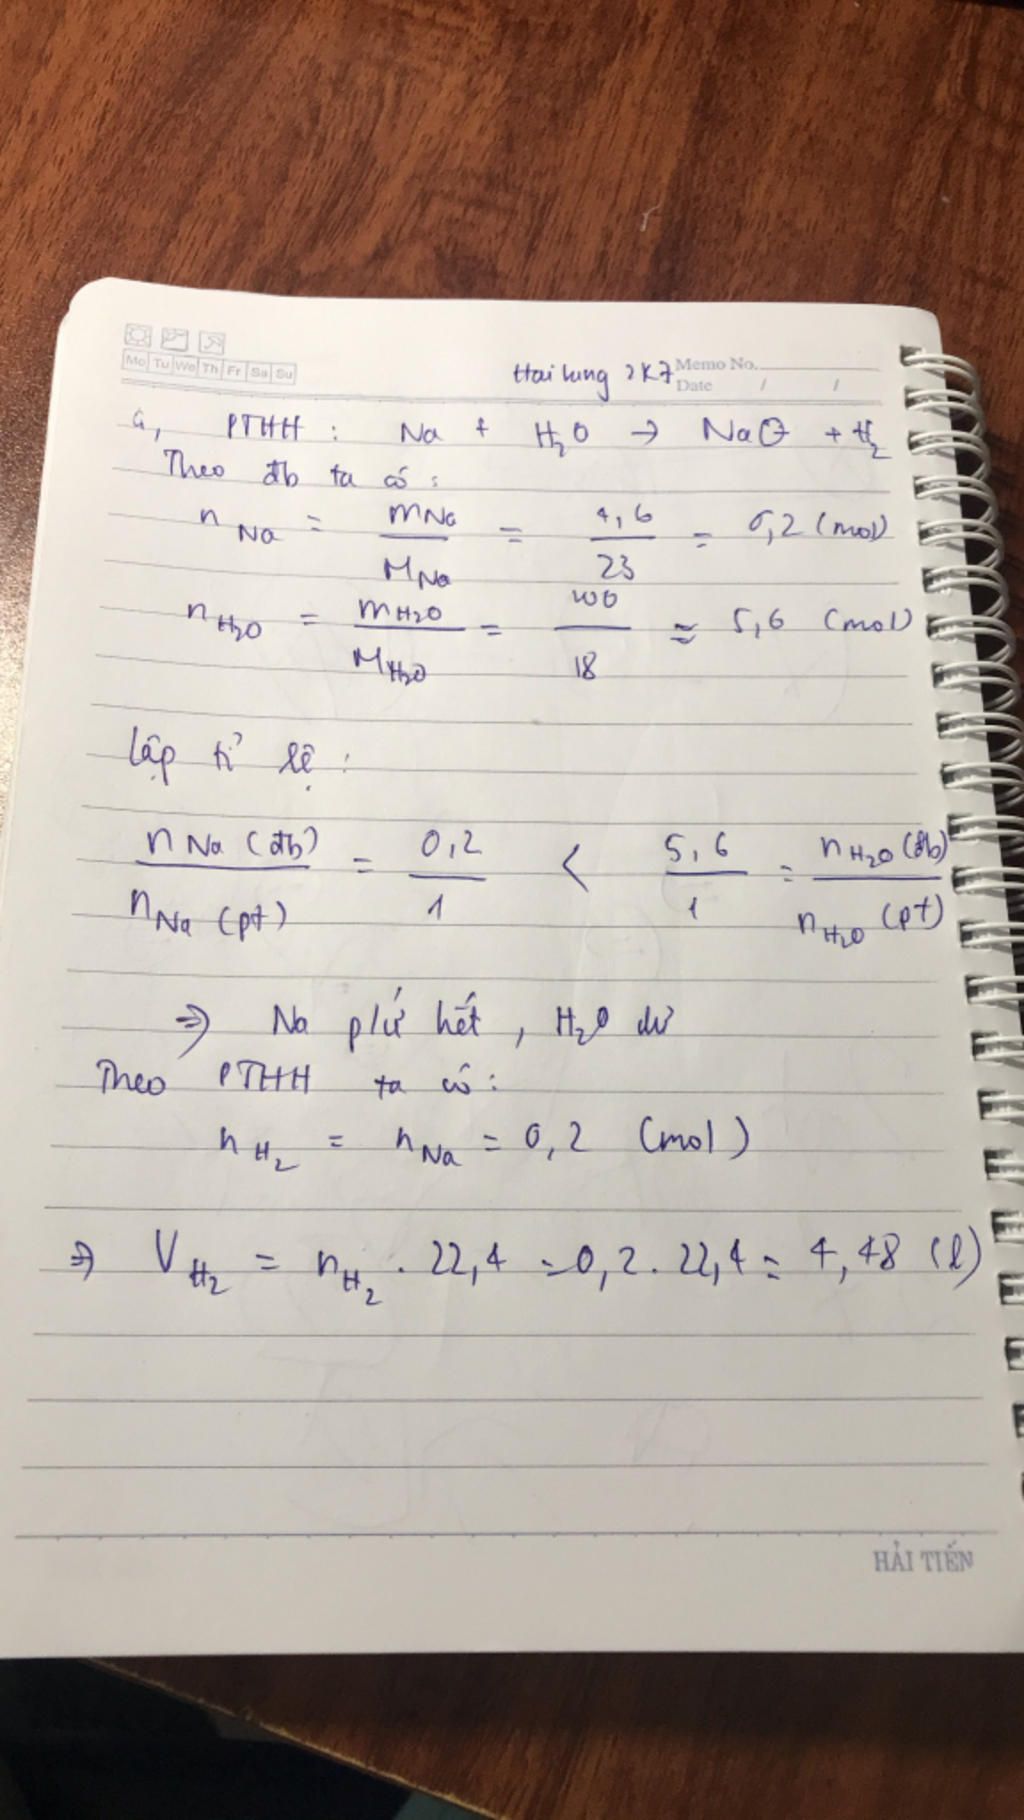 Mo Tu We Th Fr Sa Su
Hai lung 2K7 Memo No.
Date / /
a, PTHH : Na + H₂O → NaO + H₂
Theo đb ta có :
n Na = mNa / MNa = 4,6 / 23 = 0,2 (mol)
n H₂O = m H₂O / M H₂O = 100 / 18 ≈ 5,6 (mol)
Lập tỉ lệ :
n Na (đb) / n Na (pt) = 0,2 / 1 < 5,6 / 1 = n H₂O (đb) / n H₂O (pt)
⇒ Na p/ứ hết , H₂O dư
Theo PTHH ta có :
n H₂ = n Na = 0,2 (mol)
⇒ V H₂ = n H₂ . 22,4 = 0,2 . 22,4 = 4,48 (l)
HẢI TIẾN